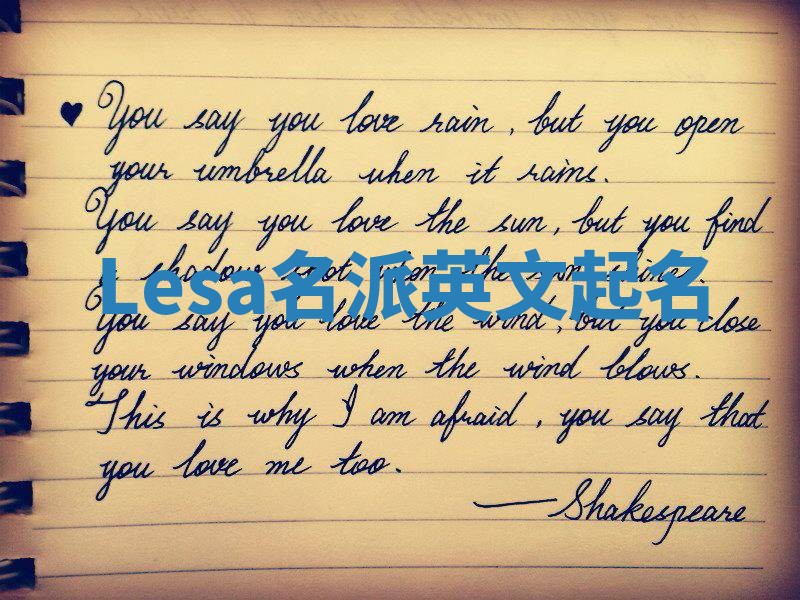 You say you love rain, but you open
your umbrella when it rains.
You say you love the sun, but you find
a shadow spot when the sun shines.
Lesa名派英文起名
You say you love the wind, but you close
your windows when the wind blows.
This is why I am afraid, you say that
you love me too.
—Shakespeare